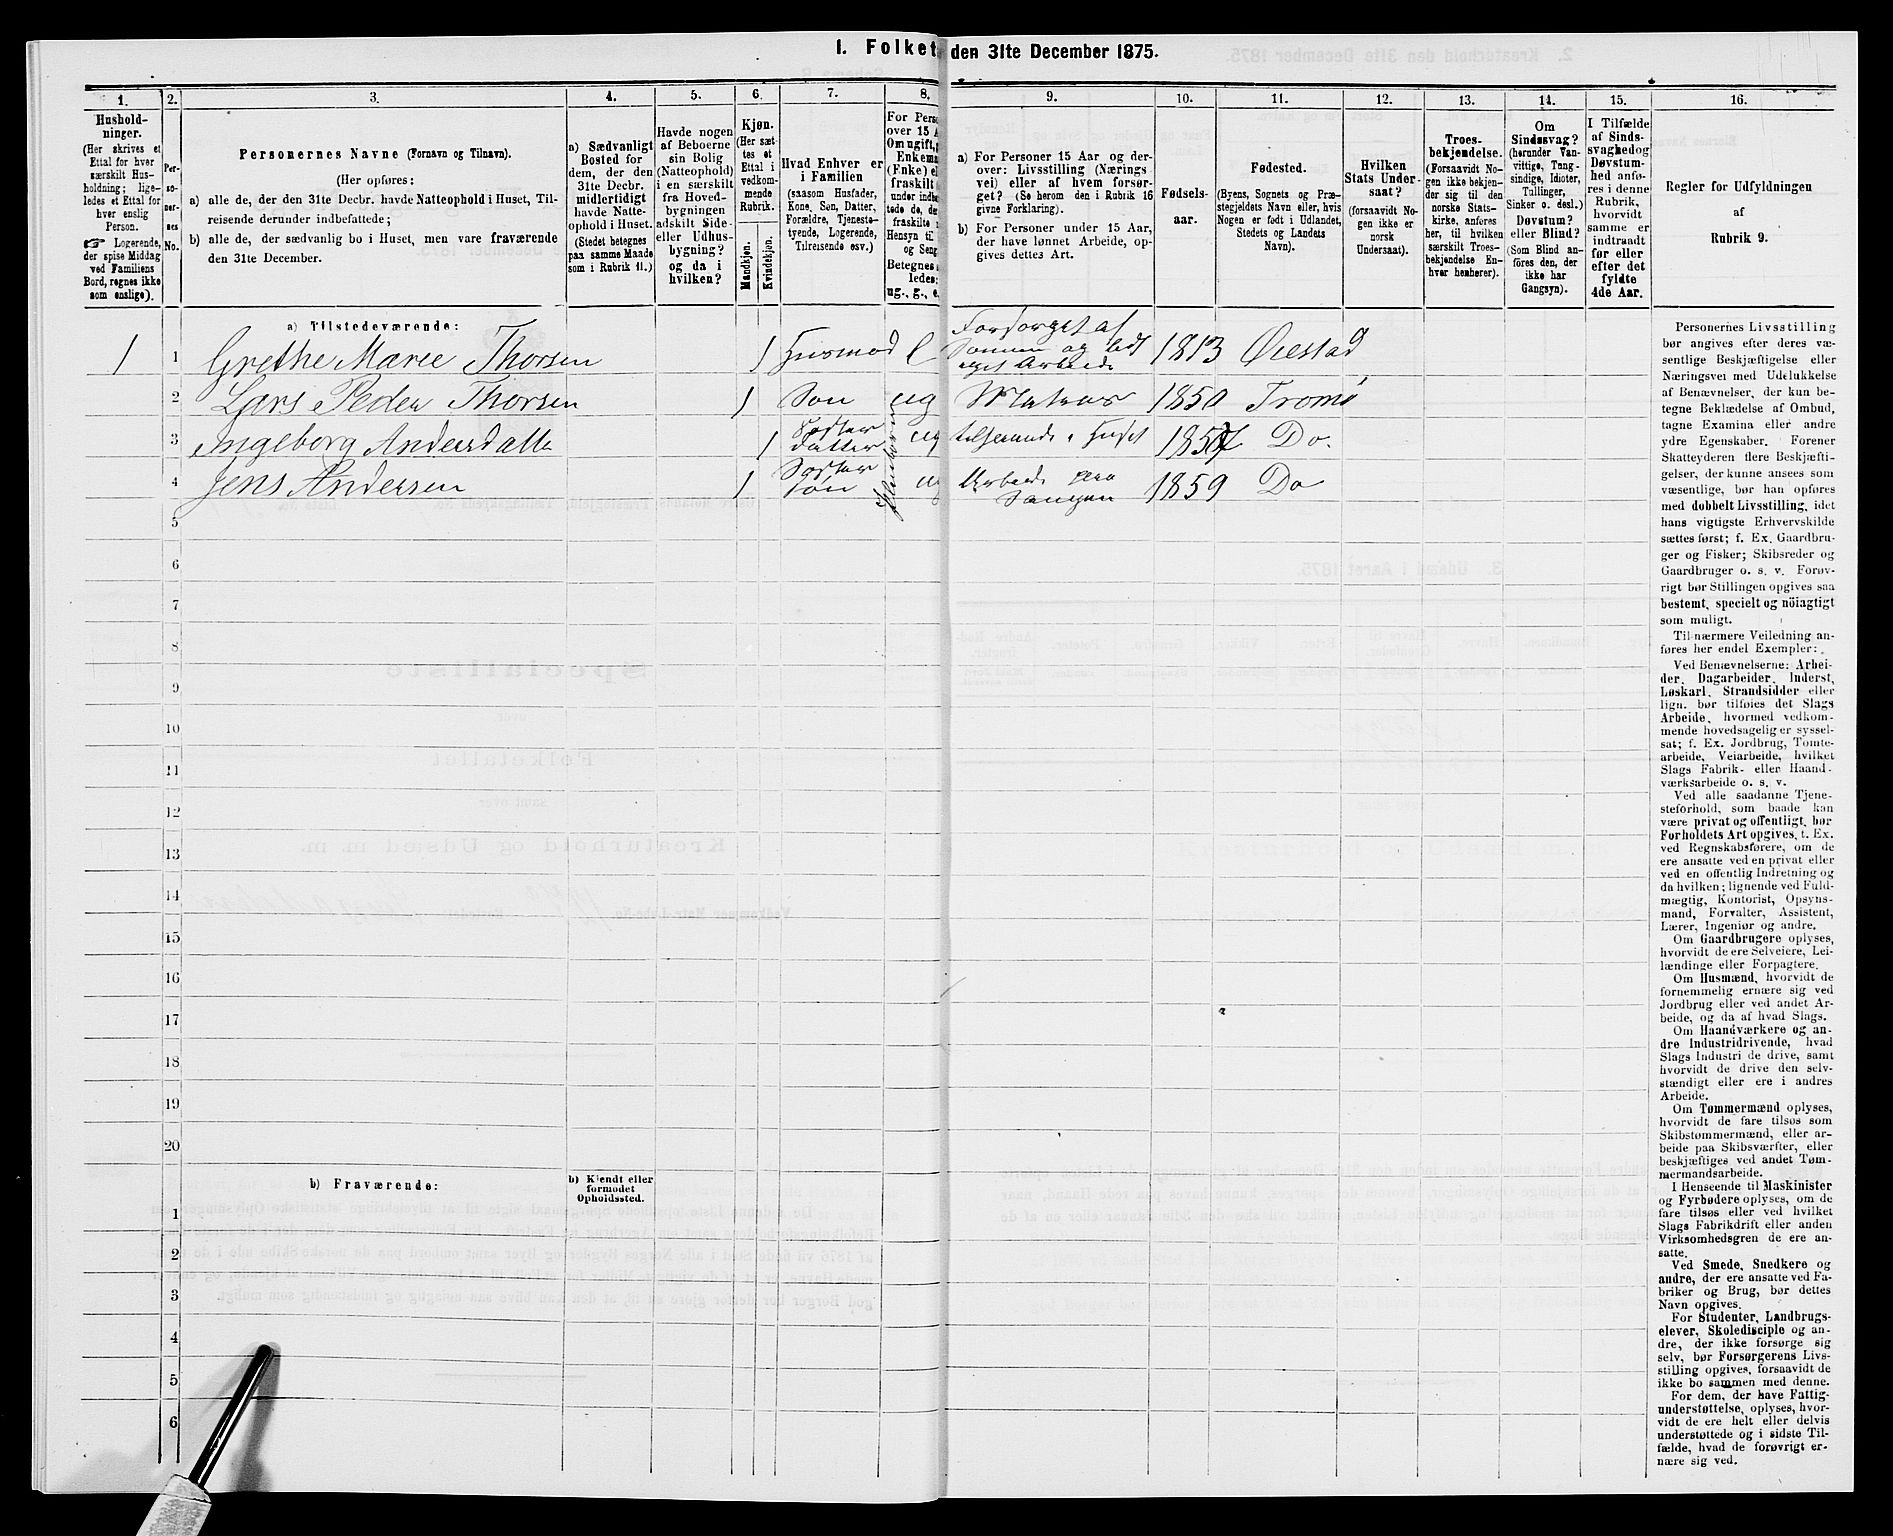 1. Folket den 31te December 1875.
1. 2. 3. 4. 5. 6. 7. 8. 9. 10. 11. 12. 13. 14. 15. 16.
Hushold-
ninger.
(Her skrives et
Ettal for hver
særskilt Hus-
holdning; lige-
ledes et Ettal for
hver enslig
Person.
☞ Logerende,
der spise Middag
ved Familiens
Bord, regnes ikke
som enslige).
Per-
so-
ner-
nes
No.
Personernes Navne (Fornavn og Tilnavn).
(Her opføres:
a) alle de, der den 31te Decbr. havde Natteophold i Huset, Til-
reisende derunder indbefattede;
b) alle de, der sædvanlig bo i Huset, men vare fraværende
den 31te December.
a) Sædvanligt
Bosted for
dem, der den
31te Decbr.
midlertidigt
havde Natte-
ophold i Huset.
(Stedet betegnes
paa samme Maade
som i Rubrik 11.)
Havde nogen
af Beboerne
sin Bolig
(Natteophold)
i en særskilt
fra Hoved-
bygningen
adskilt Side-
eller Udhus-
bygning?
og da i
hvilken?
Kjøn.
(Her sæt-
tes et
Ettal i
vedkom-
mende
Rubrik.
Mandkjøn.
Kvindekjøn.
Hvad Enhver er
i Familien
(saasom Husfader,
Kone, Søn, Datter,
Forældre, Tjeneste-
tyende, Logerende,
Tilreisende osv.)
For Perso
over 15 A
Om ugift,
Enkema
(Enke) el
fraskilt
under indbe
tede de, der
fraskilte
Hensyn til
og Seng
Betegnes
ledes:
ug., g., e.
a) For Personer 15 Aar og der-
over: Livsstilling (Nærings
vei) eller af hvem forsør-
get? (Se herom den i Rubrik 16
givne Forklaring).
b) For Personer under 15 Aar,
der have lønnet Arbeide, op-
gives dettes Art.
Fødsels-
aar.
Fødested.
(Byens, Sognets og Præ-
stegjeldets Navn eller, hvis
Nogen er født i Udlandet,
Stedets og Landets
Navn).
Hvilken
Stats Under-
saat?
(forsaavidt No-
gen ikke er
norsk
Undersaat).
Troes-
bekjendelse.
(Forsaavidt No-
gen ikke bekjen-
der sig til den
norske Stats-
kirke, anføres
her, til hvilken
særskilt Troes-
bekjendelse En-
hver henhører).
Om
Sindssvag?
(herunder Van-
vittige, Tung-
sindige, Idioter,
Tullinger,
Sinker o. desl.)
Døvstum?
eller Blind?
(Som Blind an-
føres den, der
ikke har
Gangsyn).
I Tilfælde
af Sinds-
svaghed og
Døvstum-
hed anfø-
res i denne
Rubrik,
hvorvidt
samme er
indtraadt
før eller
efter det
fyldte
4de Aar.
Regler for Udfyldningen
af
Rubrik 9.
a) Tilstedeværende:
1 1 Grethe Marie Thorsen 1 Husmod e Forsørget af Sønnen og lidt eget Arbeide 1813 Øiestad
2 Lars Peder Thorsen 1 Søn ug Matros 1850 Tromø
3 Ingeborg Andersdatter 1 Datter ug tilhaande i Huset Do.
4 Jens Andersen 1 Søn ug Arbeide paa Saugen 1859 Do
5
6
7
8
9
10
11
12
13
14
15
16
17
18
19
20
b) Fraværende:
b) Kjendt eller
formodet
Opholdssted.
1
2
3
4
5
6
Personernes Livsstilling
bør angives efter deres væ-
sentlige Beskjæftigelse eller
Næringsvei med Udelukkelse
af Benævnelser, der kun be-
tegne Beklædelse af Ombud,
tagne Examina eller andre
ydre Egenskaber. Forener
Skatteyderen flere Beskjæfti-
gelser, der kunne ansees som
væsentlige, bør han opføres
med dobbelt Livsstilling, idet
hans vigtigste Erhvervskilde
sættes først; f. Ex. Gaardbru-
ger og Fisker; Skibsreder og
Gaardbruger o. s. v. Forøv-
rigt bør Stillingen opgives saa
bestemt, specielt og nöiagtigt
som muligt.
Til nærmere Veiledning an-
føres her endel Exempler:
Ved Benævnelserne: Arbei-
der, Dagarbeider, Inderst,
Løskarl, Strandsidder eller
lign. bør tilføies det Slags
Arbeide, hvormed vedkom-
mende hovedsagelig er syssel-
sat; f. Ex. Jordbrug, Tomte-
arbeide, Veiarbeide, hvilket
Slags Fabrik- eller Haand-
værksarbeide o. s. v.
Ved alle saadanne Tjene-
steforhold, som baade kan
være privat og offentligt, bør
Forholdets Art opgives, t. Ex.
ved Regnskabsførere, om de
ere ansatte ved en privat eller
ved en offentlig Indretning og
da hvilken; lignende ved Fuld-
mægtig, Kontorist, Opsyns-
mand, Forvalter, Assistent,
Lærer, Ingeniør og andre.
Om Gaardbrugere oplyses,
hvorvidt de ere Selveiere, Lei-
lændinge eller Forpagtere.
Om Husmænd, hvorvidt de
fornemmelig ernære sig ved
Jordbrug eller ved andet Ar-
beide, og da af hvad Slags.
Om Haandværkere og an-
dre Industridrivende, hvad
Slags Industri de drive, samt
hvorvidt de drive den selv-
stændigt eller ere i andres
Arbeide.
Om Tømmermænd oplyses,
hvorvidt de fare tilsøs som
Skibstømmermænd, eller ar-
beide paa Skibsværfter, eller
beskjæftiges ved andet Tøm-
mermandsarbeide.
I Henseende til Maskinister
og Fyrbødere oplyses, om de
fare tilsøs eller ved hvilket
Slags Fabrikdrift eller anden
Virksomhedsgren de ere an-
satte.
Ved Smede, Snedkere og
andre, der ere ansatte ved Fa-
briker og Brug, bør dettes
Navn opgives.
For Studenter, Landbrugs-
elever, Skoledisciple og an-
dre, der ikke forsørge sig
selv, bør Forsørgerens Livs-
stilling opgives, forsaavidt de
ikke bo sammen med denne.
For dem, der have Fattig-
understøttelse, oplyses, hvor-
vidt de ere helt eller delvis
understøttede og i sidste Til-
fælde, hvad de forøvrigt er-
nære sig ved.